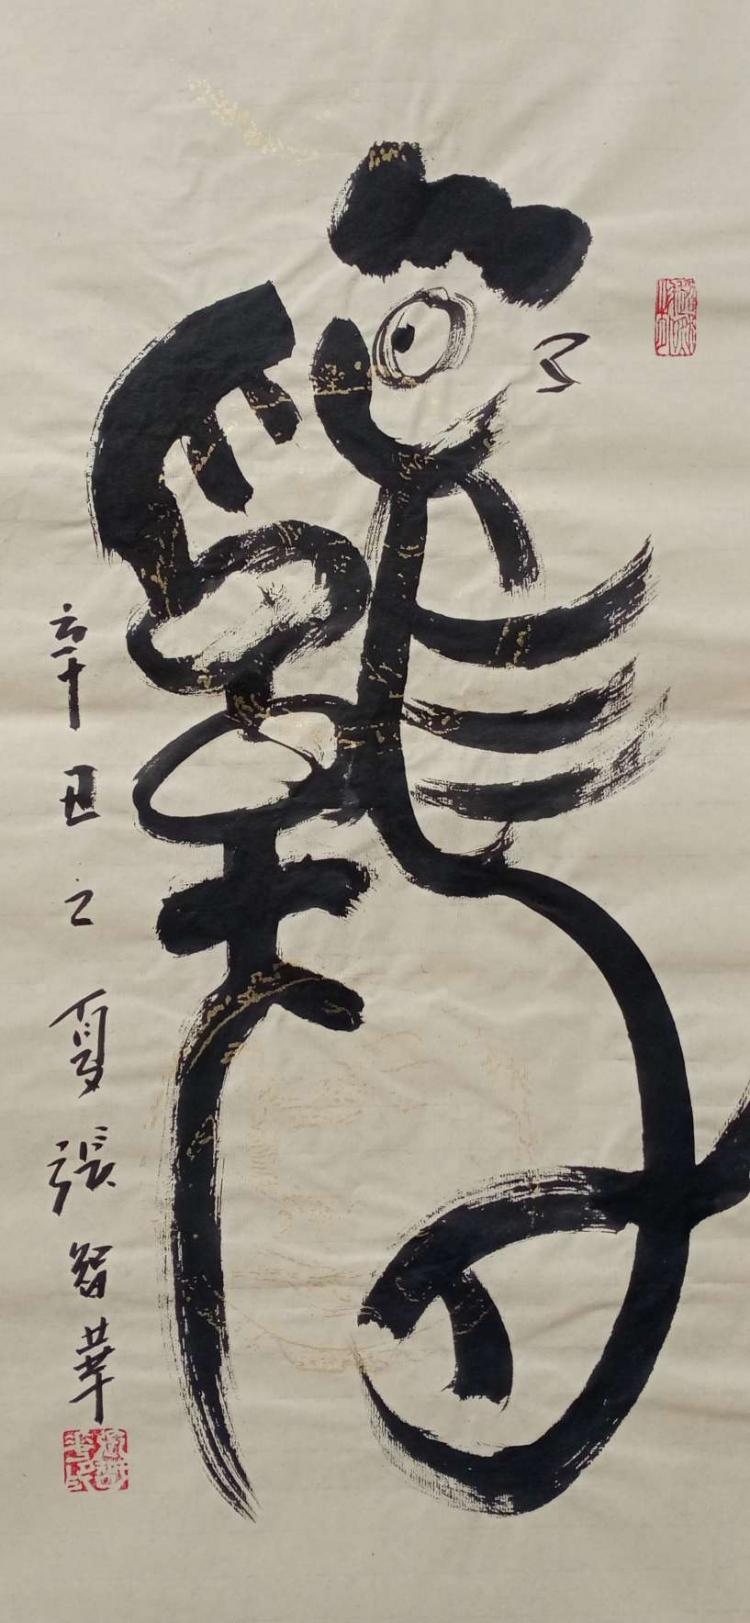 雞
辛丑之夏張智華